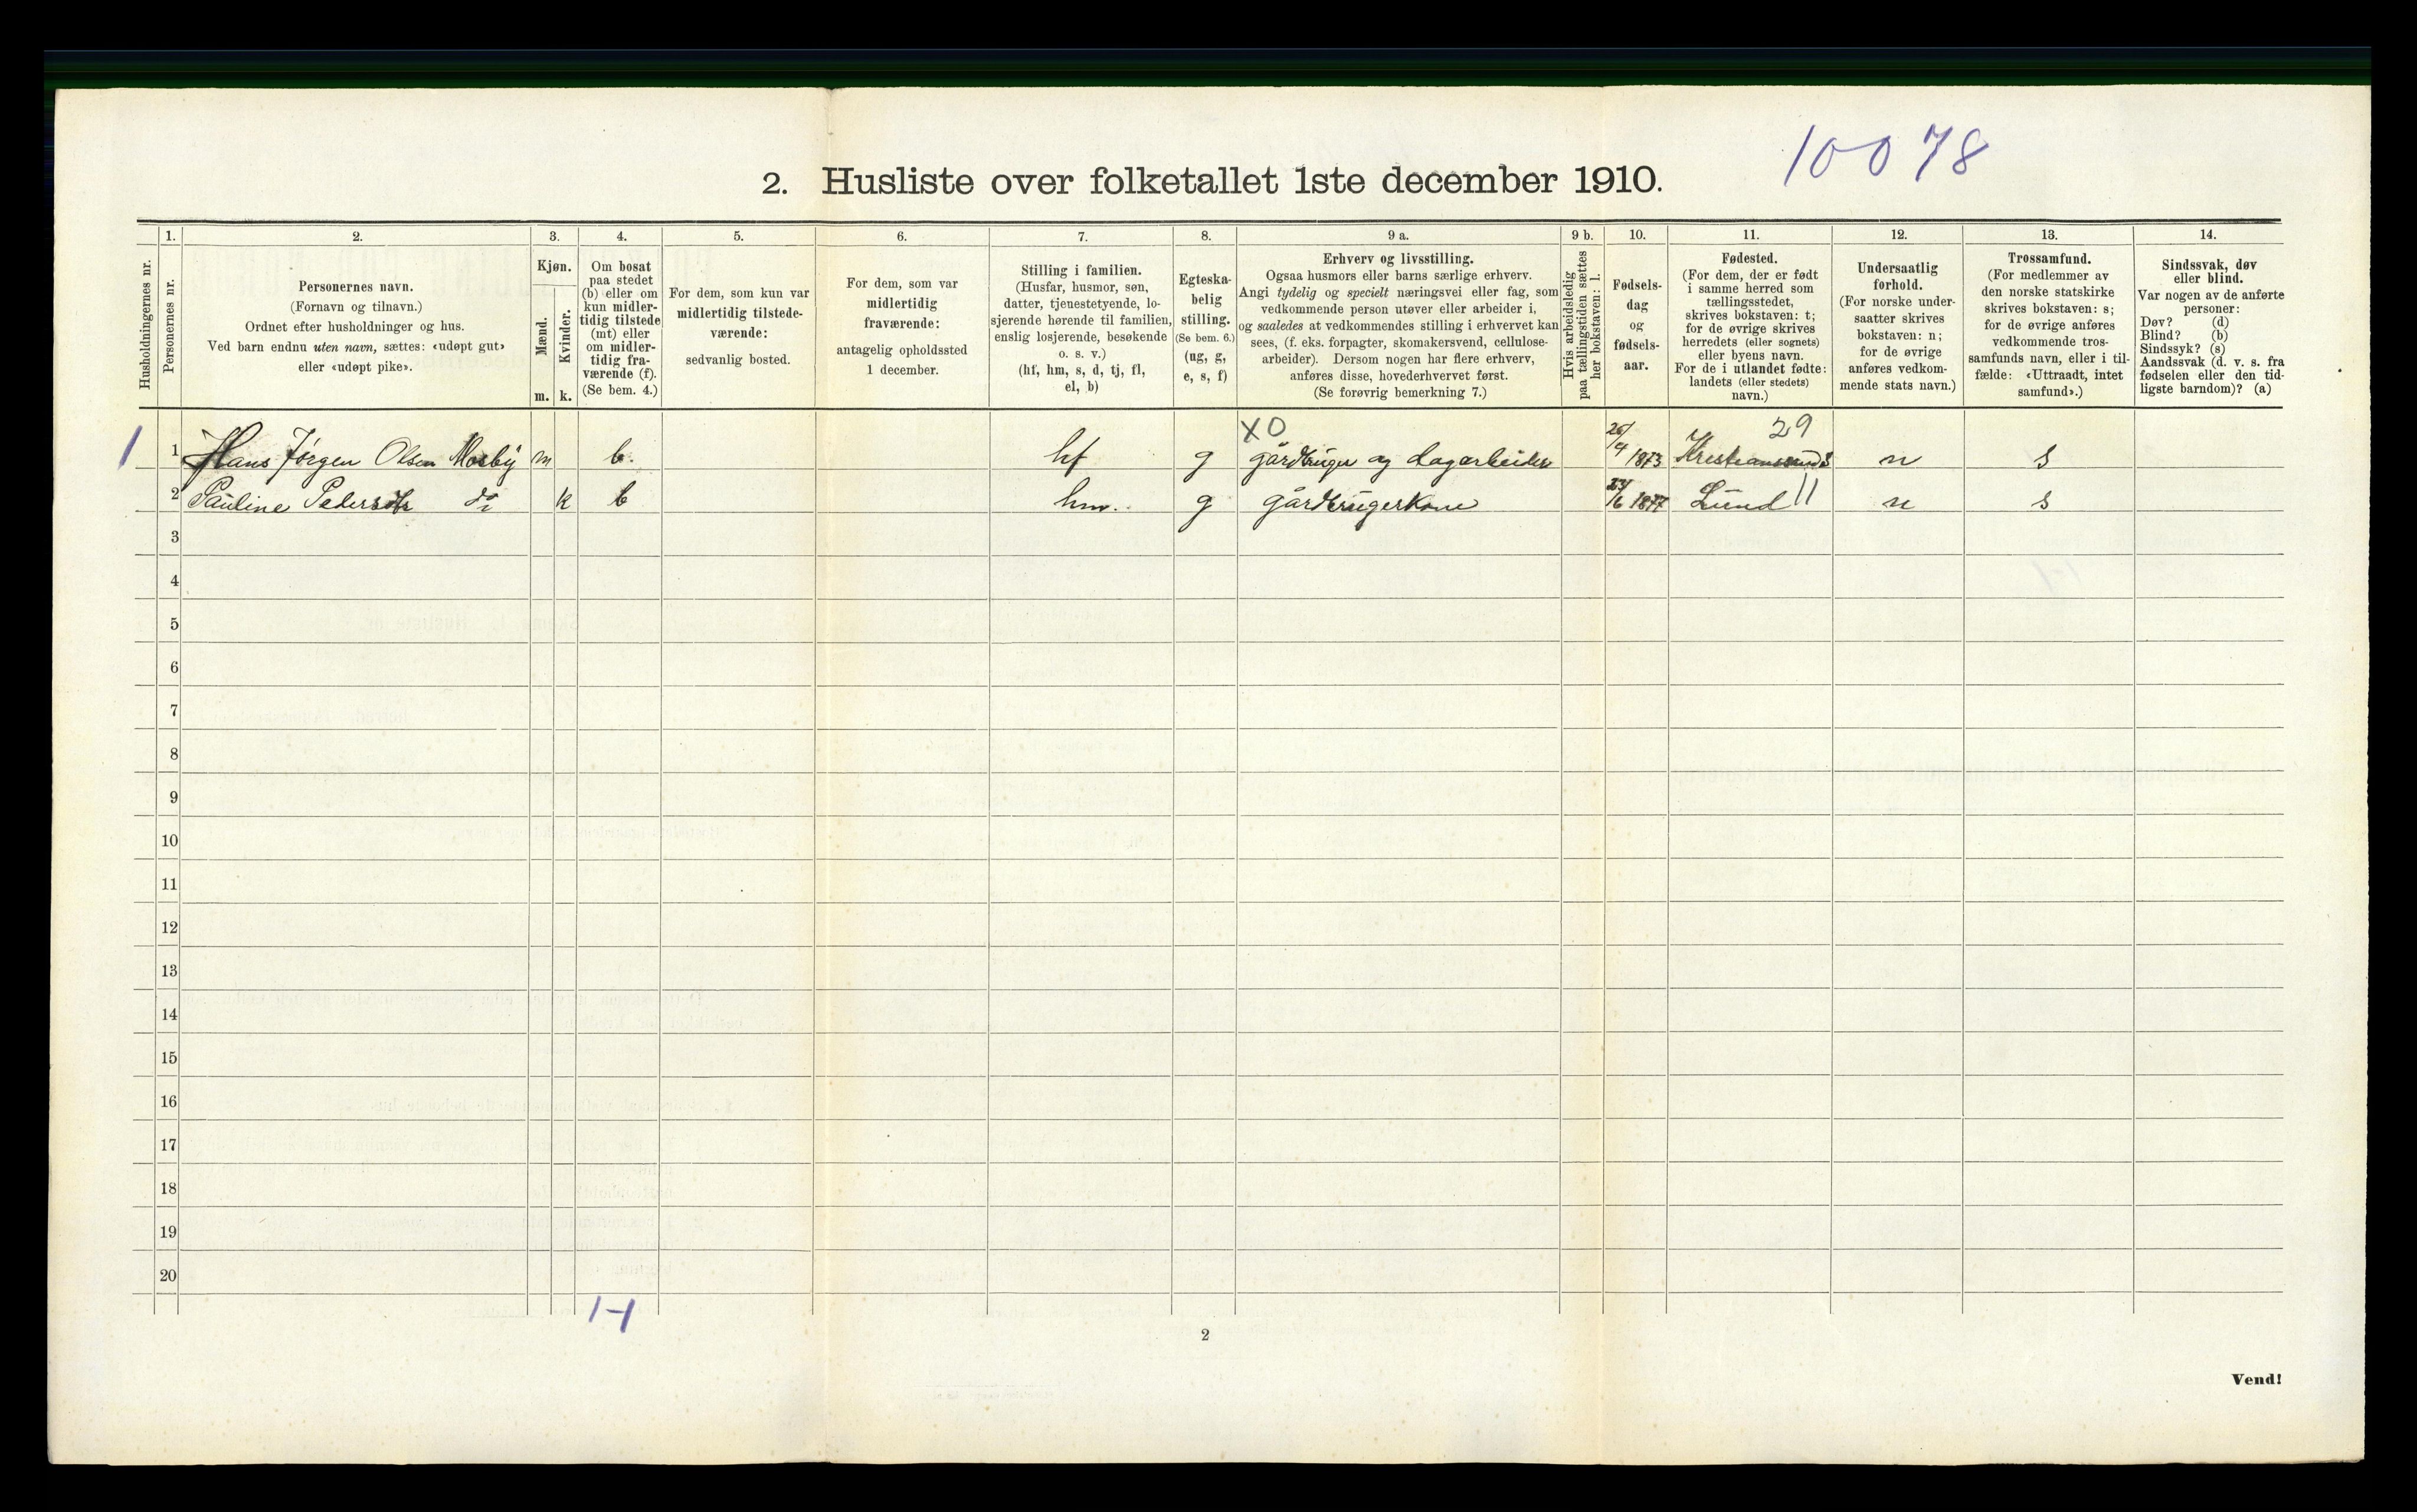 10078
2. Husliste over folketallet 1ste december 1910.
Husholdningernes nr.
1.
Personernes nr.
2.
Personernes navn.
(Fornavn og tilnavn.)
Ordnet efter husholdninger og hus.
Ved barn endnu uten navn, sættes: «udøpt gut»
eller «udøpt pike».
3.
Kjøn.
Mænd.
Kvinder.
m. k.
4.
Om bosat
paa stedet
(b) eller om
kun midler-
tidig tilstede
(mt) eller
om midler-
tidig fra-
værende (f).
(Se bem. 4.)
5.
For dem, som kun var
midlertidig tilstede-
værende:
sedvanlig bosted.
6.
For dem, som var
midlertidig
fraværende:
antagelig opholdssted
1 december.
7.
Stilling i familien.
(Husfar, husmor, søn,
datter, tjenestetyende, lo-
sjerende hørende til familien,
enslig losjerende, besøkende
o. s. v.)
(hf, hm, s, d, tj, fl,
el, b)
8.
Egteska-
belig
stilling.
(Se bem. 6.)
(ug, g,
e, s, f)
9 a.
Erhverv og livsstilling.
Ogsaa husmors eller barns særlige erhverv.
Angi tydelig og specielt næringsvei eller fag, som
vedkommende person utøver eller arbeider i,
og saaledes at vedkommendes stilling i erhvervet kan
sees, (f. eks. forpagter, skomakersvend, cellulose-
arbeider). Dersom nogen har flere erhverv,
anføres disse, hovederhvervet først.
(Se forøvrig bemerkning 7.)
9 b.
Hvis arbeidsledig
paa tællingstiden sættes
her bokstaven: l.
10.
Fødsels-
dag
og
fødsels-
aar.
11.
Fødested.
(For dem, der er født
i samme herred som
tællingsstedet,
skrives bokstaven: t;
for de øvrige skrives
herredets (eller sognets)
eller byens navn.
For de i utlandet fødte:
landets (eller stedets)
navn.)
12.
Undersaatlig
forhold.
(For norske under-
saatter skrives
bokstaven: n;
for de øvrige
anføres vedkom-
mende stats navn.)
13.
Trossamfund.
(For medlemmer av
den norske statskirke
skrives bokstaven: s;
for de øvrige anføres
vedkommende tros-
samfunds navn, eller i til-
fælde: «Uttraadt, intet
samfund».)
14.
Sindssvak, døv
eller blind.
Var nogen av de anførte
personer:
Døv? (d)
Blind? (b)
Sindssyk? (s)
Aandssvak (d. v. s. fra
fødselen eller den tid-
ligste barndom)? (a)
XO 29
1 1 Hans Jørgen Olsen Mosby m b. hf g gårdbruger og dagarbeider /4 1873 n s
2 Pauline do k b hm. g gårdbrugerkone /6 1877 Lund 11 n s
3
4
5
6
7
8
9
10
11
12
13
14
15
16
17
18
19
20
1-1
2
Vend!